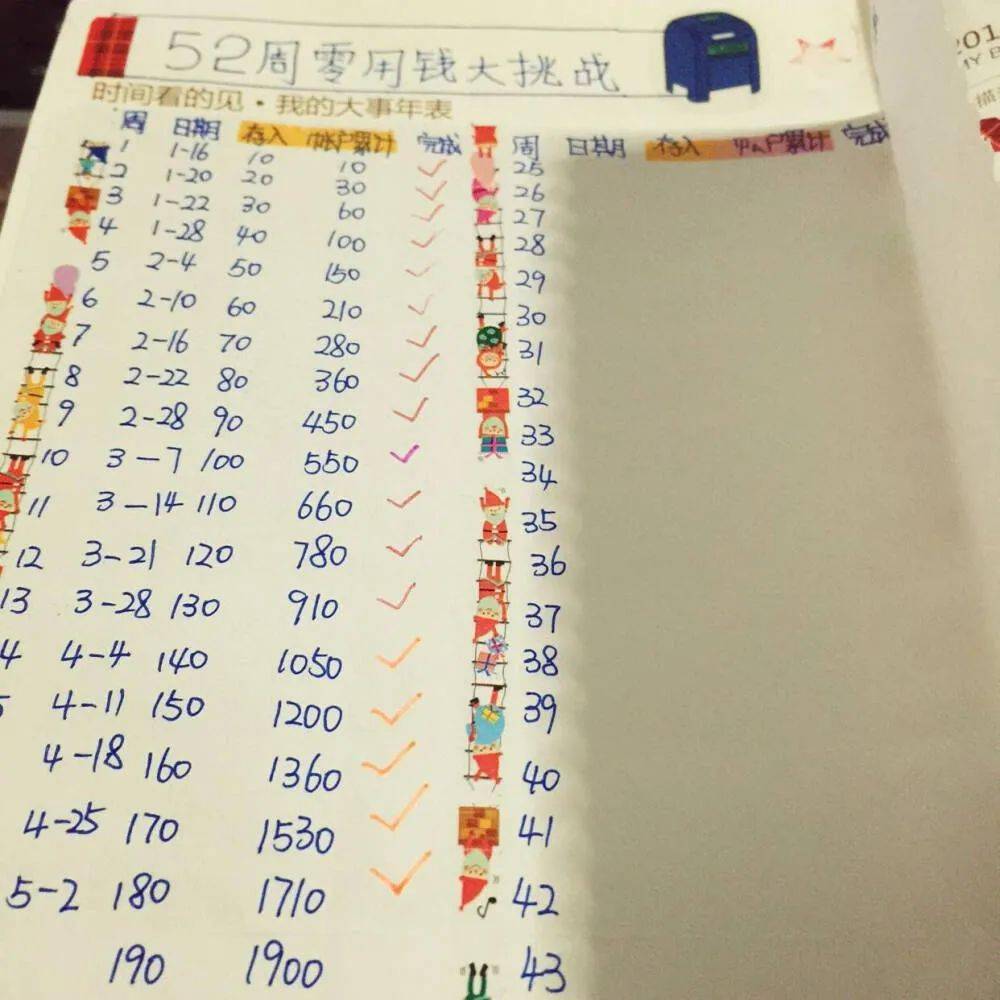 52周零用钱大挑战
时间看的见·我的大事年表
周 日期 存入 帐户累计 完成
1 1-16 10 10
2 1-20 20 30
3 1-22 30 60
4 1-28 40 100
5 2-4 50 150
6 2-10 60 210
7 2-16 70 280
8 2-22 80 360
9 2-28 90 450
10 3-7 100 550
11 3-14 110 660
12 3-21 120 780
13 3-28 130 910
4 4-4 140 1050
4-11 150 1200
4-18 160 1360
4-25 170 1530
5-2 180 1710
190 1900
周 日期 存入 户累计 完成
25
26
27
28
29
30
31
32
33
34
35
36
37
38
39
40
41
42
43
201
MY